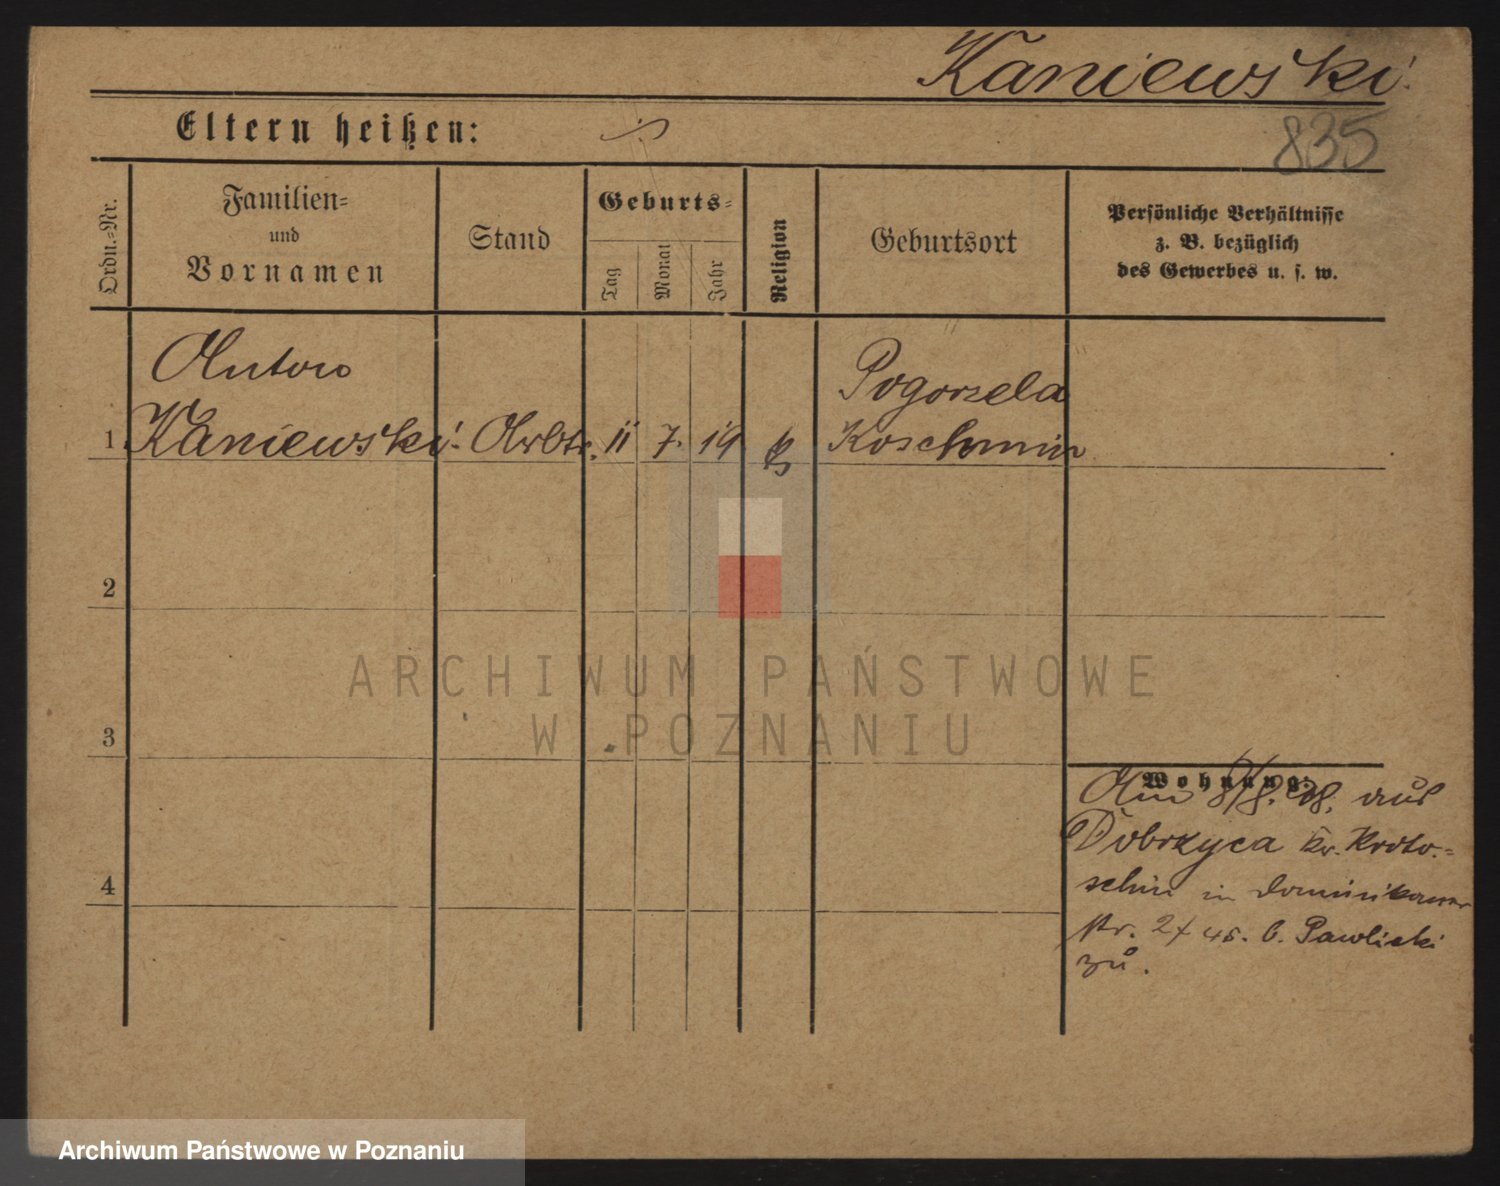 Kaniewski.
835
Eltern heißen:
Ordn.-Nr.
Familien-
und
Vornamen
Stand
Geburts-
Tag
Monat
Jahr
Religion
Geburtsort
Persönliche Verhältnisse
z. B. bezüglich
des Gewerbes u. s. w.
Anton
Pogorzela
1 Kaniewski. Arbtr. 11 7. Koschmin
2
ARCHIWUM PAŃSTWOWE
W POZNANIU
3
Wohnung:
Am 8/8. 08. aus
Dobrzyca Kr. Kroto-
schin in Dominikaner
str. b. Pawlicki
zu.
4
Archiwum Państwowe w Poznaniu